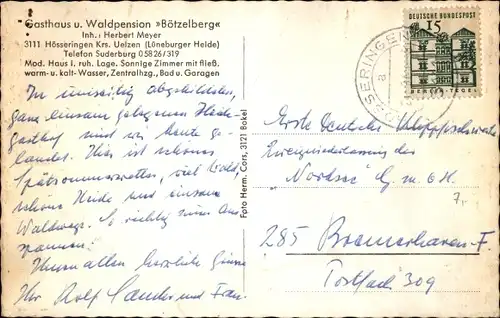 Gasthaus u. Waldpension »Bötzelberg«
Inh.: Herbert Meyer
3111 Hösseringen Krs. Uelzen (Lüneburger Heide)
Telefon Suderburg 05826/319
Mod. Haus i. ruh. Lage. Sonnige Zimmer mit fließ.
warm- u. kalt-Wasser, Zentralhzg., Bad u. Garagen
Im umseitig abgebildeten,
ganz einsam gelegenen Heide-
gasthof sind wir heute ge-
landet. Hier ist schönes
Spätsommerwetter, viel Wald,
schöne Heide und einsame
Waldwege. So richtig zum Aus-
spannen!
Ihnen allen herzliche Grüße
Ihr Rolf Sander und Frau
Foto Herm. Cors, 3121 Bokel
DEUTSCHE BUNDESPOST
15
BERLIN-TEGEL
HÖSSERINGEN
a
Erste Deutsche
Zweigniederlassung der
"Nordsee" G.m.b.H.
7,-
285 Bremerhaven-F
Postfach 309